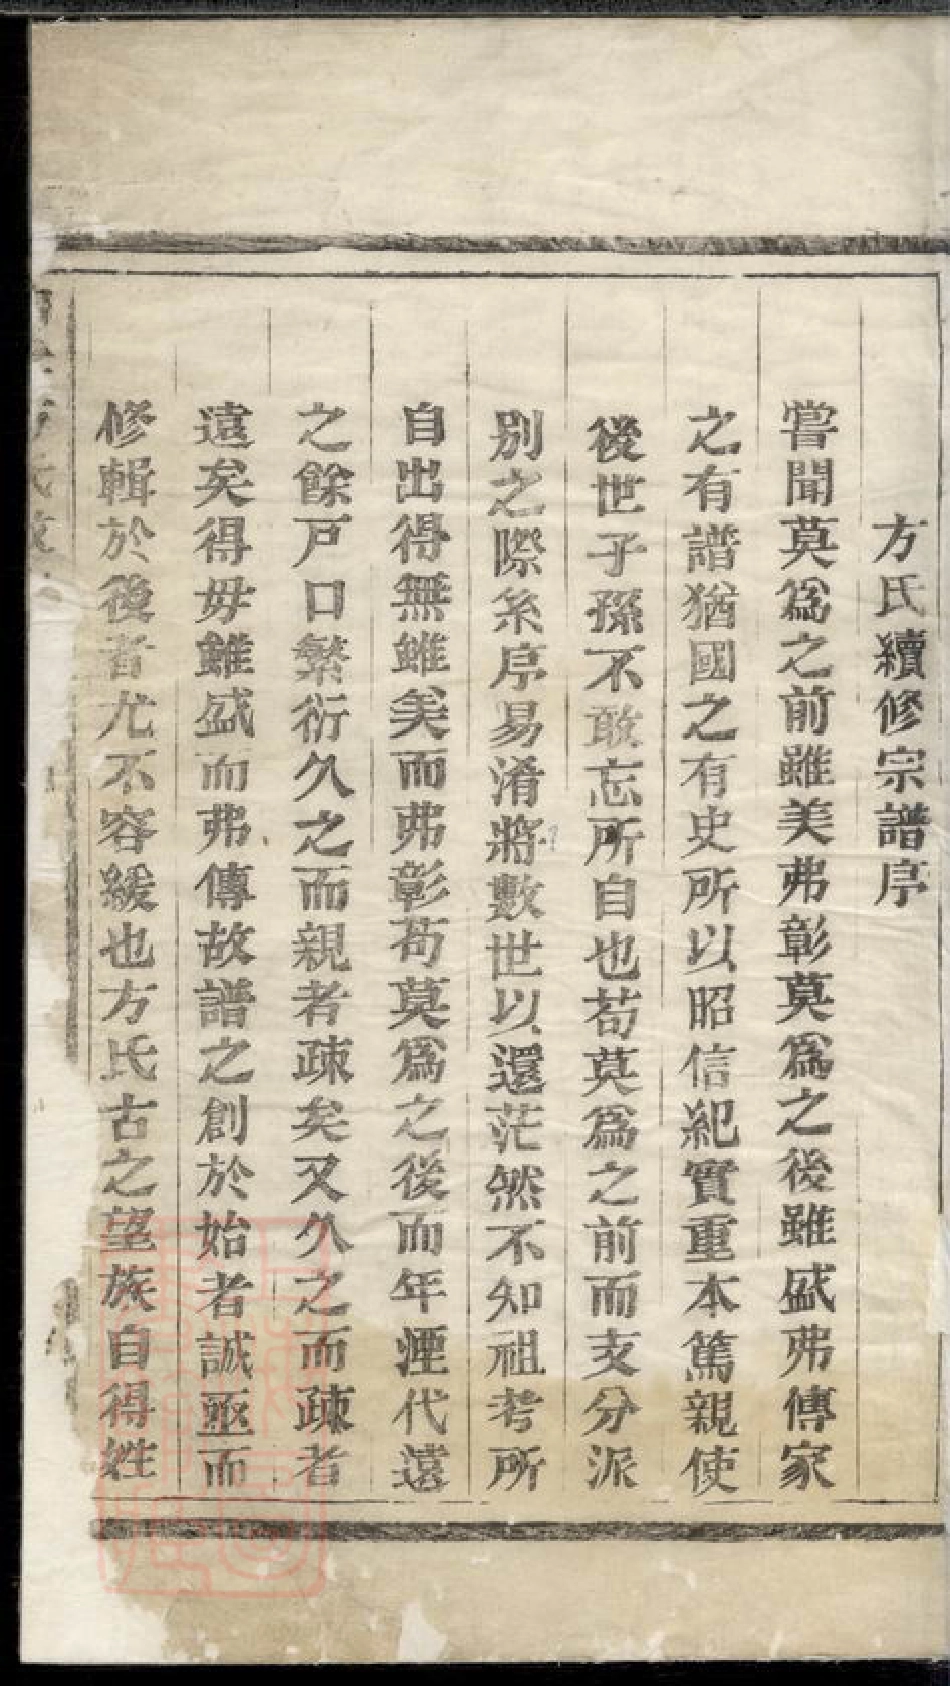 方氏續修宗譜序
嘗聞莫爲之前雖美弗彰莫爲之後雖盛弗傳家
之有譜猶國之有史所以昭信紀實重本篤親使
後世子孫不敢忘所自也苟莫爲之前而支分派
別之際糸序易淆將數世以還茫然不知祖考所
自出得無雖美而弗彰苟莫爲之後而年湮代遠
之餘戸口繁衍久之而親者疎矣又久之而疎者
遠矣得毋雖盛而弗傳故譜之創於始者誠亟而
修輯於後者尤不容緩也方氏古之望族自得姓